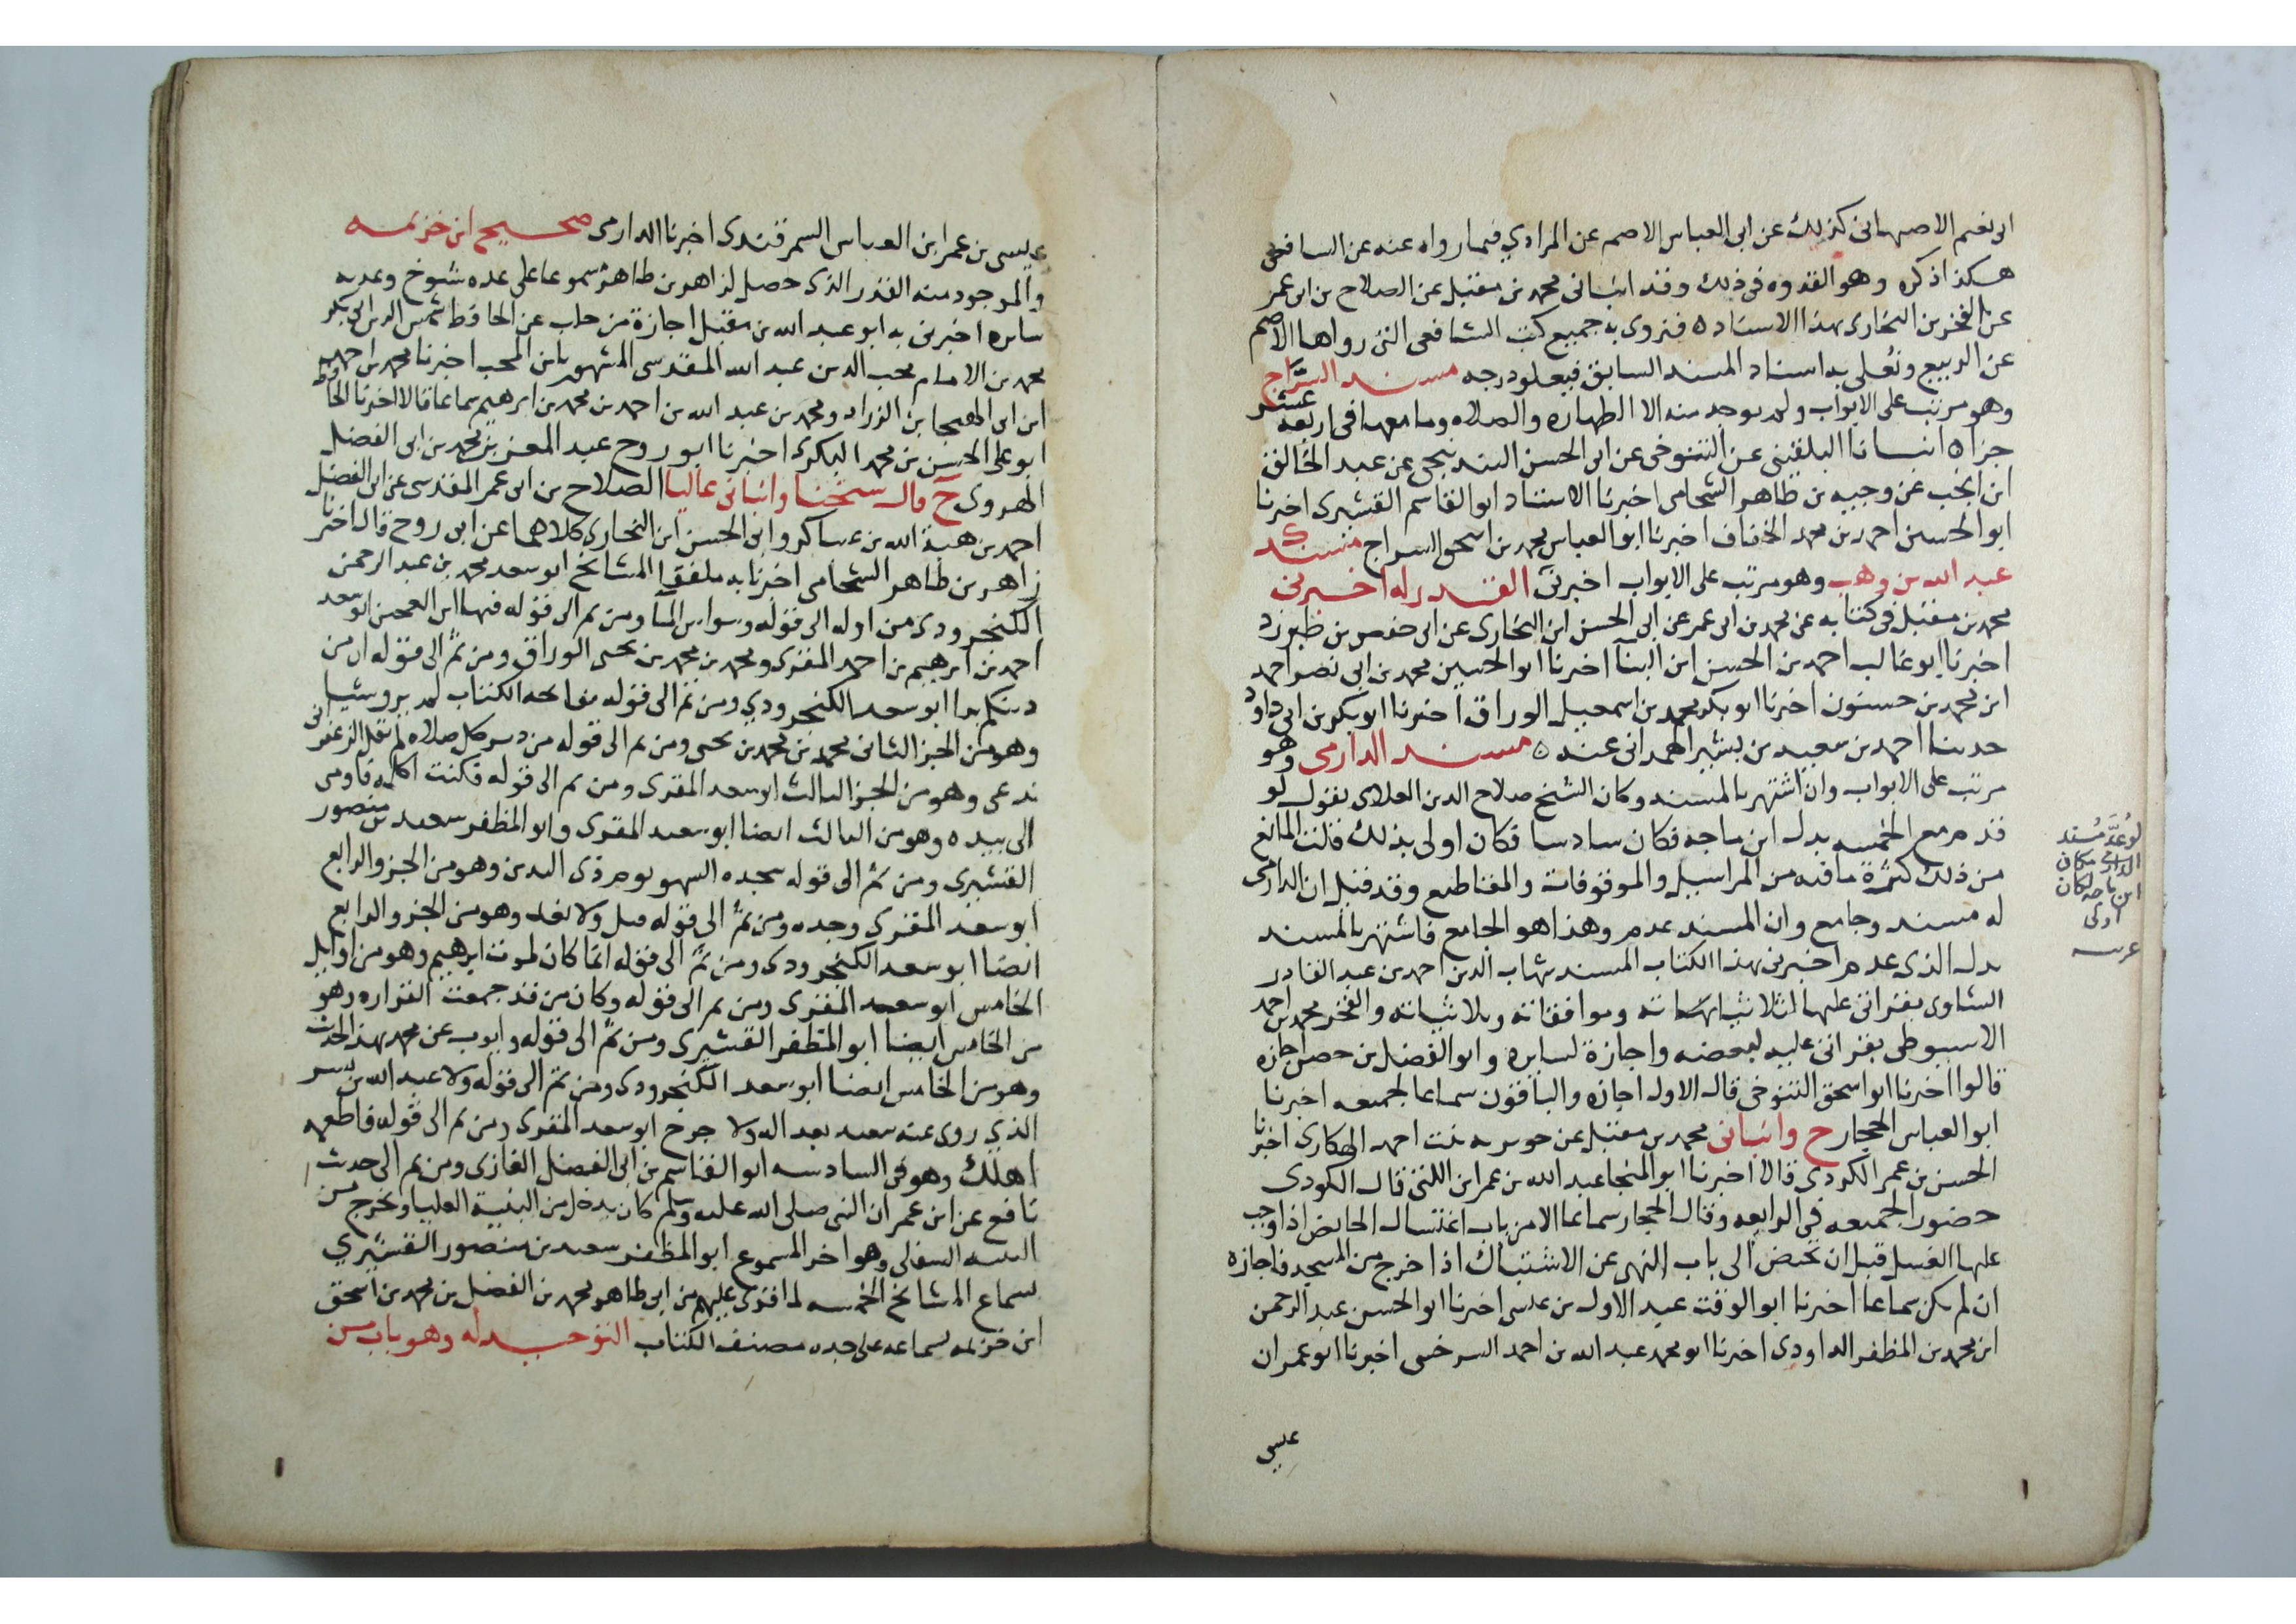 ابى نعيم الاصبهانى كذلك عن ابى العباس الاصم عن المرادي فيما رواه عنه عن الشافعى
هكذا ذكره وهو القدوه فى ذلك وقد انبانى محمد بن مقبل عن الصلاح بن ابى عمر
عن الفخر بن البخارى بهذا الاسناد ه فنروى به جميع كتب الشافعى التى رواها الاصم
عن الربيع ونُعلى به اسناد المسند السابق فيعلو درجه مسند السرّاج
وهو مرتب على الابواب ولم يوجد منه الا الطهاره والصلاه وما معها فى اربعة عشر
جزا ه انبانا البلقينى عن التنوخى عن ابى الحسن البندنيجى عن عبد الخالق
ابن انجب عن وجيه بن طاهر الشحامى اخبرنا الاستاد ابو القاسم القشيرى اخبرنا
ابو الحسين احمد بن محمد الخفاف اخبرنا ابو العباس محمد بن اسحق السراج مسند
عبد الله بن وهب وهو مرتب على الابواب اخبرنى القدر له اخبرنى
محمد بن مقبل فى كتابه عن محمد بن ابى عمر عن ابى الحسن ابن البخارى عن ابى حفص بن طبرزد
اخبرنا ابو غالب احمد بن الحسن ابن البنآ اخبرنا ابو الحسين محمد بن ابى نصر احمد
ابن محمد بن حسنون اخبرنا ابو بكر محمد بن اسمعيل الوراق اخبرنا ابو بكر بن ابى داود
حدثنا احمد بن سعيد بن بشير الهمدانى عنه ه مسند الدارمى وهو
مرتب على الابواب وان اشتهر بالمسند وكان الشيخ صلاح الدين العلاى يقول لو
قدم مع الخمسه بدل ابن ماجه فكان سادسا فكان اولى بذلك قلت المانع
من ذلك كثرة ما فيه من المراسيل والموقوفات والمقاطيع وقد قيل ان الدارمى
له مسند وجامع وان المسند عدم وهذا هو الجامع فاشتهر بالمسند
بدل الذى عدم اخبرنى بهذا الكتاب المسند شهاب الدين احمد بن عبد القادر
الشاوى بقرانى عليه لثلاثياته وموافقاته والفخر محمد بن احمد
الاسيوطى بقرانى عليه لبعضه واجازة لسايره وابو الفضل بن حصن اجازه
قالوا اخبرنا ابو اسحق التنوخى قال الاول اجازه والباقون سماعا لجميعه اخبرنا
ابو العباس الحجار ح وانبانى محمد بن مقبل عن جويريه بنت احمد الهكارى اخبرنا
الحسن بن عمر الكردى قالا اخبرنا ابو المنجا عبد الله بن عمر ابن اللتى قال الكردى
حضورا لجميعه فى الرابعه وقال الحجار سماعا الا من باب اغتسال الحايض اذا وجب
عليها الغسل قبل ان تحيض الى باب النهى عن الاشتباك اذا خرج من المسجد فاجازه
ان لم يكن سماعا اخبرنا ابو الوقت عبد الاول بن عيسى اخبرنا ابو الحسن عبد الرحمن
ابن محمد بن المظفر الداودى اخبرنا ابو محمد عبد الله بن احمد السرخسى اخبرنا ابو عمران
عيسى
لو عُدَّ مُسند
الدارمى مكان
ابن ماجه لكان
اولى
عيسى بن عمر ابن العباس السمرقندى اخبرنا الدارمى صحيح ابن خزيمه
والموجود منه القدر الذى حصل لزاهر بن طاهر مسموعا على عده شيوخ وعدم
سايره اخبرنى به ابو عبد الله بن مقبل اجازة من حلب عن الحافظ شمس الدين ابى بكر
محمد بن الامام محب الدين عبد الله المقدسى المشهور بابن المحب اخبرنا محمد بن احمد
ابن ابى الهيجا بن الزراد ومحمد بن عبد الله بن احمد بن محمد بن ابرهيم سماعا قالا اخبرنا الحافظ
ابو على الحسن بن محمد البكرى اخبرنا ابو روح عبد المعز بن محمد بن ابى الفضل
الهروى ح قال شيخنا وانبانى عاليا الصلاح بن ابى عمر المقدسى عن ابى الفضل
احمد بن هبة الله بن عساكر وابى الحسن ابن البخارى كلاهما عن ابى روح قال اخبرنا
زاهر بن طاهر الشحامى اخبرنا به ملفقا المشايخ ابو سعد محمد بن عبد الرحمن
الكنجرودى من اوله الى قوله ومن ثم الى قوله فيها ابن العجمى ابو سعد
احمد بن ابرهيم بن احمد المقرى ومحمد بن محمد بن يحيى الوراق ومن ثم الى قوله ان من
ابو سعد الكنجرودي ومن ثم الى قوله بفاتحه الكتاب لم يرو شيا
وهو من الجز الثانى محمد بن محمد بن يحيى ومن ثم الى قوله من دبر كل صلاه لم يقل الزعفرانى
وهو من الجز الثالث ابو سعد المقرى ومن ثم الى قوله فكنت اكلمه فاومى
الى بيده وهو من الثالث ايضا ابو سعد المقرى وابو المظفر سعيد بن منصور
القشيرى ومن ثم الى قوله سجده السهو يوم ذى اليدين وهو من الجزو الرابع
ابو سعد المقرى وحده ومن ثم الى قوله وهو من الجزو الرابع
ايضا ابو سعد الكنجرودى ومن ثم الى قوله انما كان لموت ابرهيم وهو من اوايل
الخامس ابو سعد المقرى ومن ثم الى قوله وكان من قد جمعت القراه وهو
من الخامس ايضا ابو المظفر القشيرى ومن ثم الى قوله وايوب عن محمد بهذا الحديث
وهو من الخامس ايضا ابو سعد الكنجرودى ومن ثم الى قوله ولا عبد الله بن بسر
الذي روى عنه سعيد بعداله ولا جرح ابو سعد المقرى ومن ثم الى قوله فاطعمه
اهلك وهو فى السادسه ابو القاسم بن ابى الفضل الغازى ومن ثم الى حديث
نافع عن ابن عمر ان النبى صلى الله عليه وسلم كان يدخل من الثنية العليا ويخرج من
الثنيه السفلى وهو اخر المسموع ابو المظفر سعيد بن منصور القشيري
بسماع المشايخ الخمسه لما قرى عليهم من ابى طاهر محمد بن الفضل بن محمد بن اسحق
ابن خزيمه لسماعه على جده مصنف الكتاب التوحيد له وهو باب من